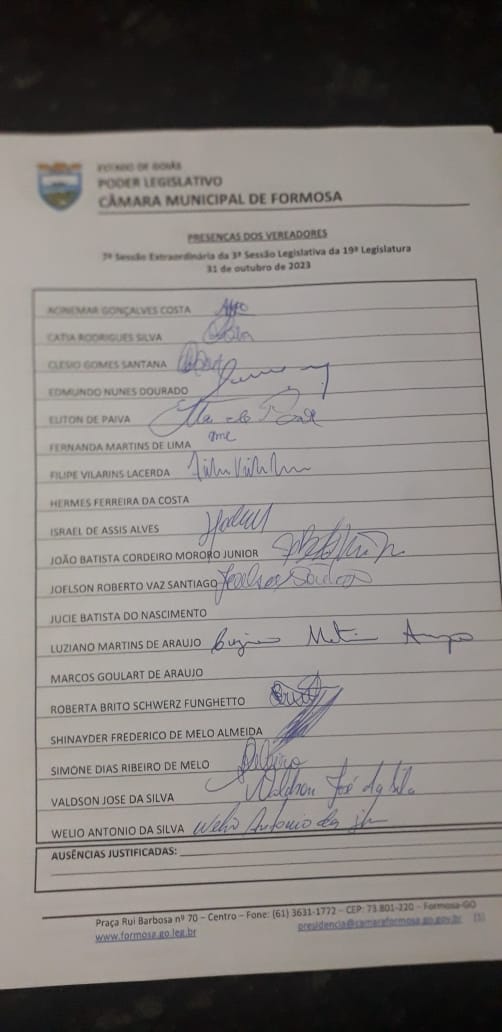 ESTADO DE GOIÁS
PODER LEGISLATIVO
CÂMARA MUNICIPAL DE FORMOSA
PRESENÇAS DOS VEREADORES
7ª Sessão Extraordinária da 3ª Sessão Legislativa da 19ª Legislatura
31 de outubro de 2023
ACINEMAR GONÇALVES COSTA
CATIA RODRIGUES SILVA
CLESIO GOMES SANTANA
EDMUNDO NUNES DOURADO
ELITON DE PAIVA
FERNANDA MARTINS DE LIMA
FILIPE VILARINS LACERDA
HERMES FERREIRA DA COSTA
ISRAEL DE ASSIS ALVES
JOÃO BATISTA CORDEIRO MORORO JUNIOR
JOELSON ROBERTO VAZ SANTIAGO
JUCIE BATISTA DO NASCIMENTO
LUZIANO MARTINS DE ARAUJO
MARCOS GOULART DE ARAUJO
ROBERTA BRITO SCHWERZ FUNGHETTO
SHINAYDER FREDERICO DE MELO ALMEIDA
SIMONE DIAS RIBEIRO DE MELO
VALDSON JOSE DA SILVA Valdson José da Silva
WELIO ANTONIO DA SILVA Welio Antonio da
AUSÊNCIAS JUSTIFICADAS:
Praça Rui Barbosa nº 70 – Centro – Fone: (61) 3631-1772 – CEP: 73.801-220 – Formosa-GO
www.formosa.go.leg.br presidencia@camaraformosa.go.gov.br